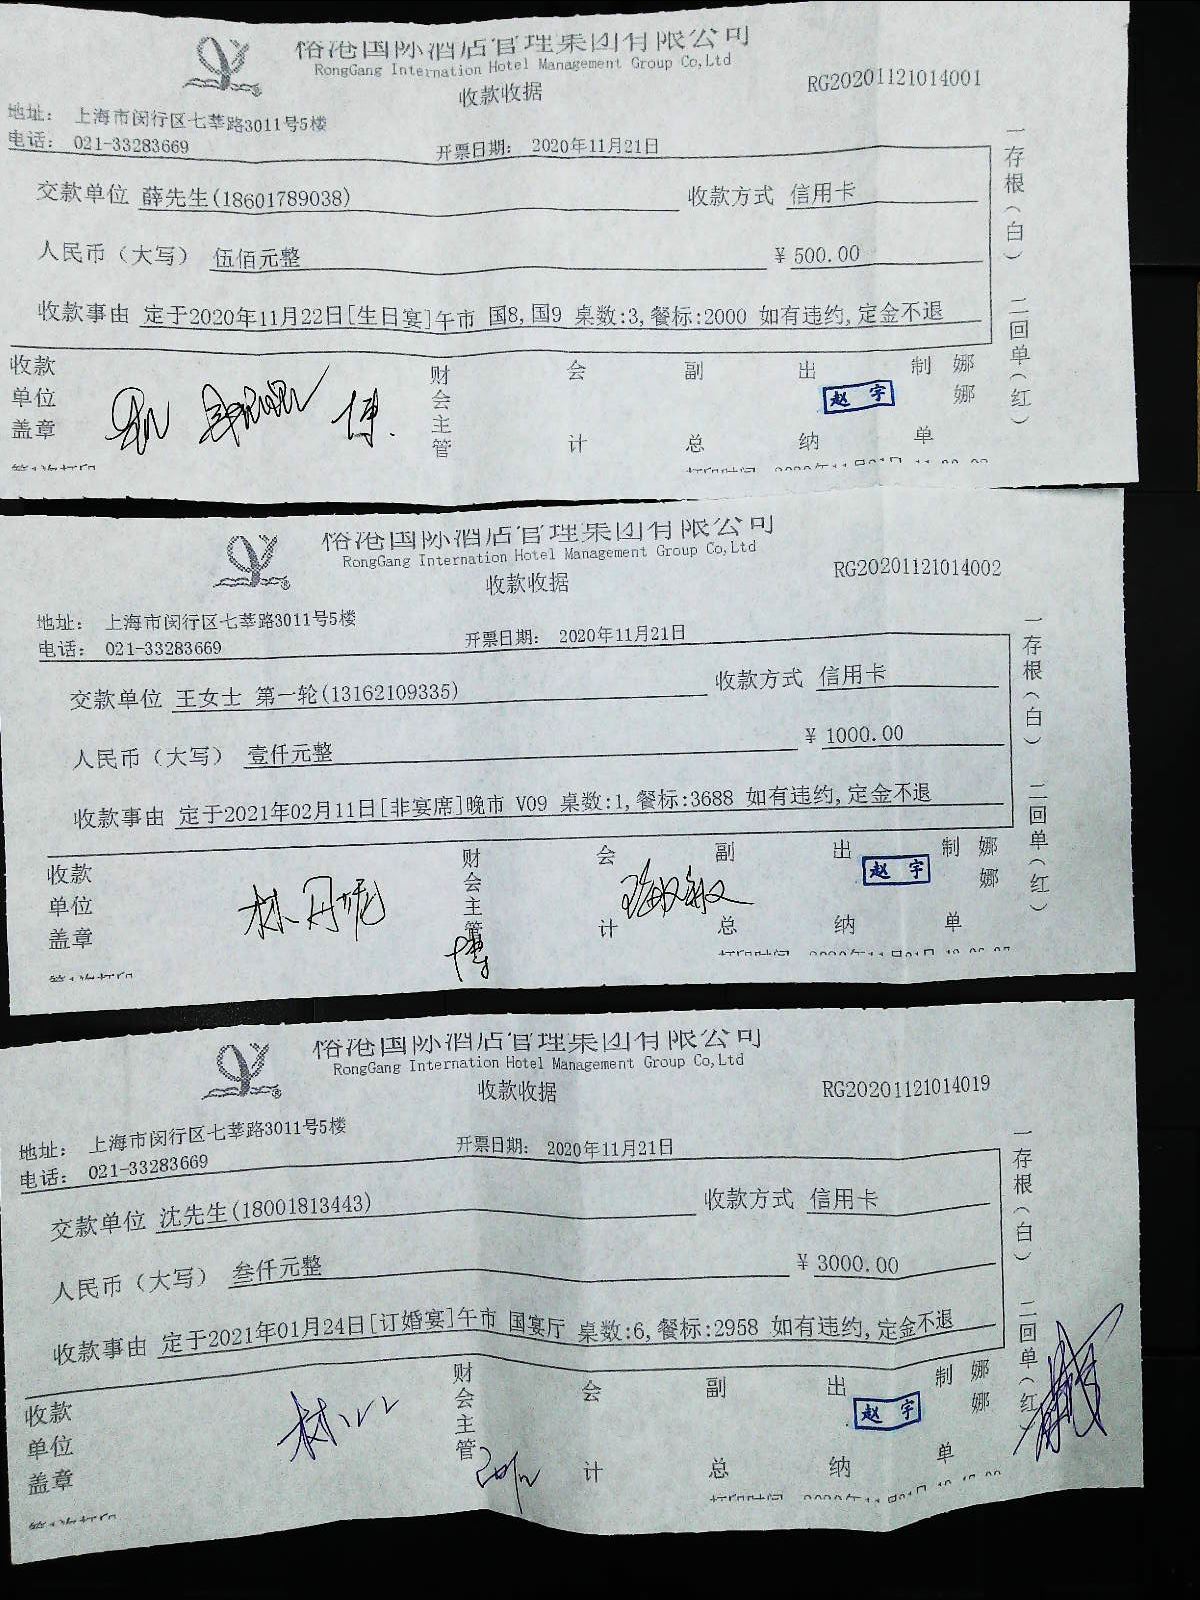 俗港国际酒店管理集团有限公司
RongGang Internation Hotel Management Group Co,Ltd
收款收据
RG20201121014001
地址: 上海市闵行区七莘路3011号5楼
电话: 021-33283669
开票日期: 2020年11月21日
交款单位 薛先生(18601789038) 收款方式 信用卡
人民币(大写) 伍佰元整 ¥ 500.00
收款事由 定于2020年11月22日[生日宴]午市 国8,国9 桌数:3,餐标:2000 如有违约,定金不退
一存根(白) 二回单(红)
收款单位盖章 财会主管 会计 副总 出纳 赵宇 制单 娜娜
第1次打印 打印时间 2020年11月21日
俗港国际酒店管理集团有限公司
RongGang Internation Hotel Management Group Co,Ltd
收款收据
RG20201121014002
地址: 上海市闵行区七莘路3011号5楼
电话: 021-33283669
开票日期: 2020年11月21日
交款单位 王女士 第一轮(13162109335) 收款方式 信用卡
人民币(大写) 壹仟元整 ¥ 1000.00
收款事由 定于2021年02月11日[非宴席]晚市 V09 桌数:1,餐标:3688 如有违约,定金不退
一存根(白) 二回单(红)
收款单位盖章 林丹妮 财会主管 会计 副总 出纳 赵宇 制单 娜娜
第1次打印 打印时间 2020年11月21日
俗港国际酒店管理集团有限公司
RongGang Internation Hotel Management Group Co,Ltd
收款收据
RG20201121014019
地址: 上海市闵行区七莘路3011号5楼
电话: 021-33283669
开票日期: 2020年11月21日
交款单位 沈先生(18001813443) 收款方式 信用卡
人民币(大写) 叁仟元整 ¥ 3000.00
收款事由 定于2021年01月24日[订婚宴]午市 国宴厅 桌数:6,餐标:2958 如有违约,定金不退
一存根(白) 二回单(红)
收款单位盖章 财会主管 会计 副总 出纳 赵宇 制单 娜娜
第1次打印 打印时间 2020年11月21日